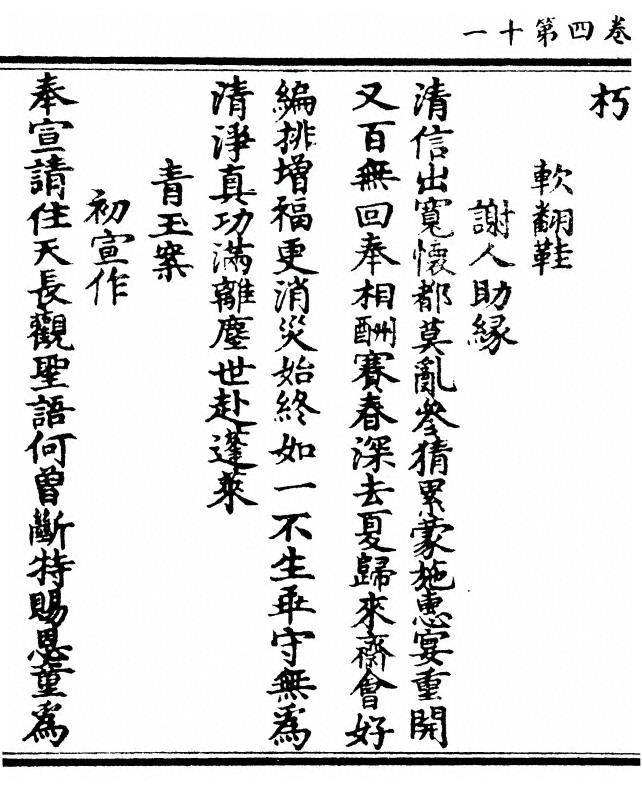 卷四第十一
朽
軟翻鞋
謝人助緣
清信出寬懷都莫亂參猜累蒙施惠宴重開
又百無回奉相酬賽春深去夏歸來齋會好
編排增福更消災始終如一不生乖守無為
清淨真功滿離塵世赴蓬萊
青玉案
初宣作
奉宣請住天長觀聖語何曾斷特賜恩童為